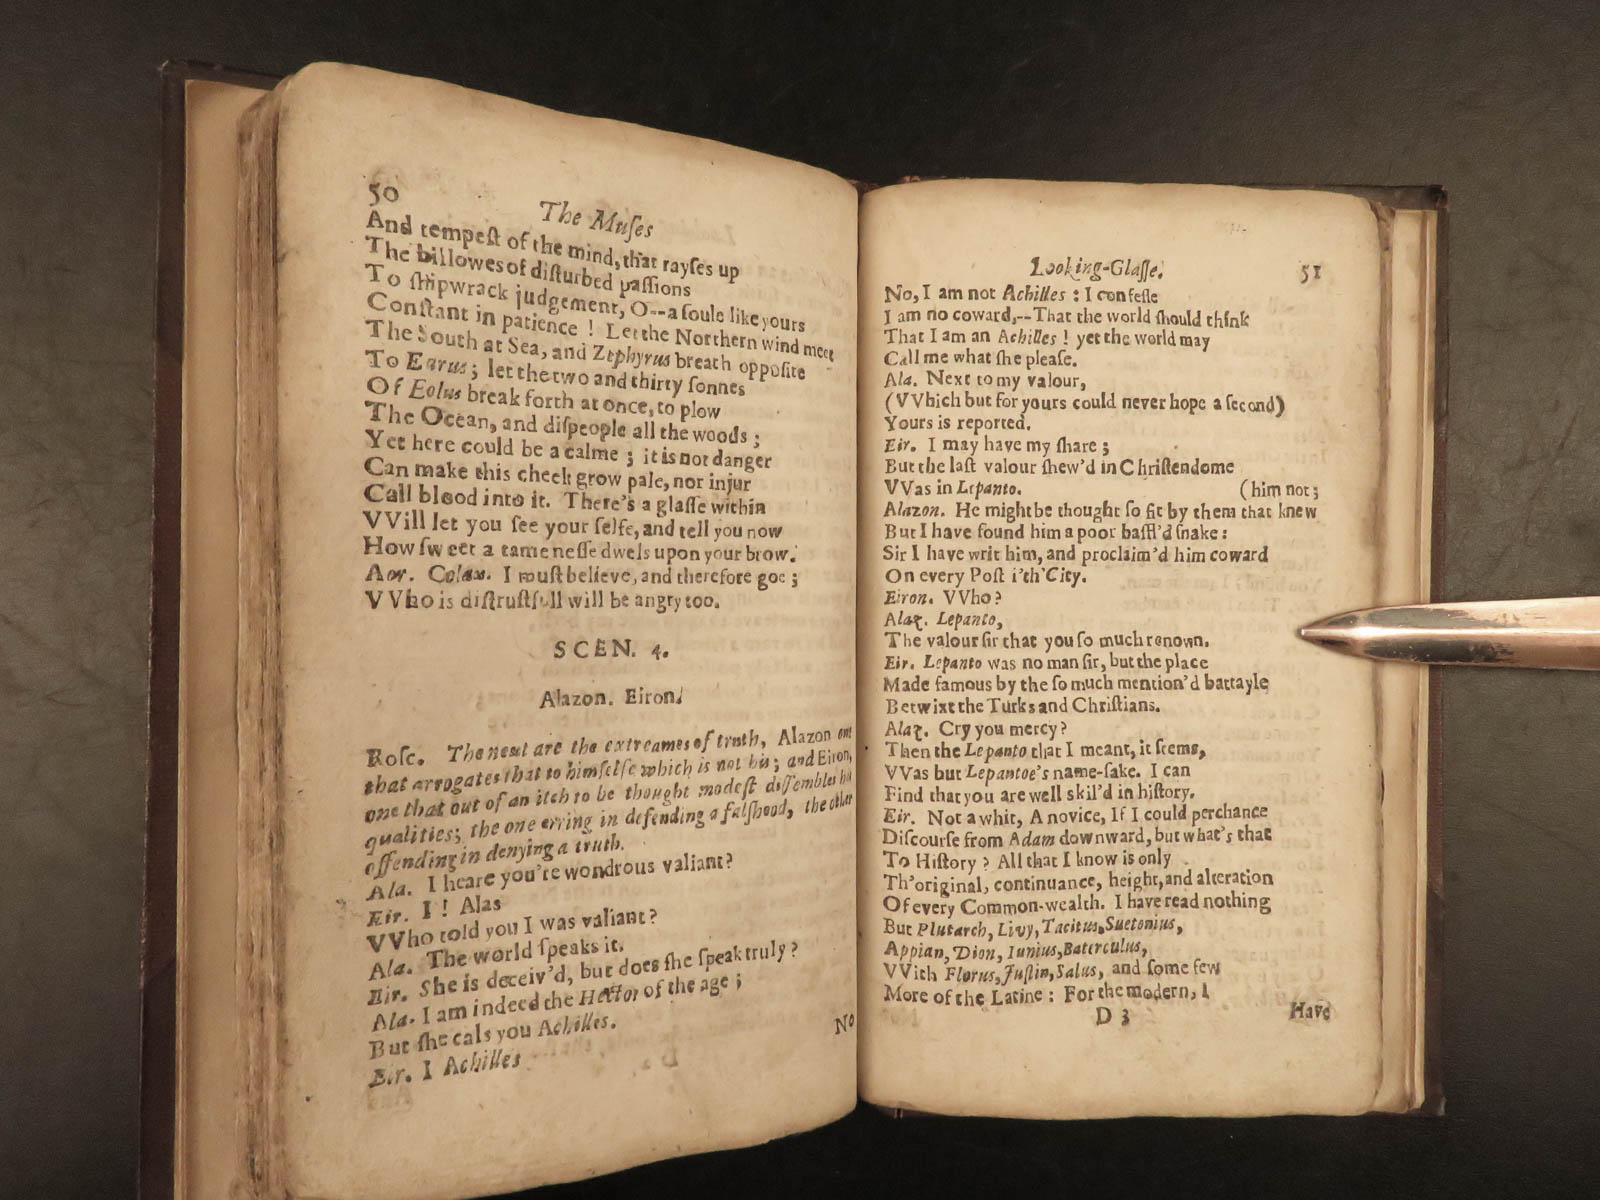 50
The Muſes
And tempeſt of the mind, that rayſes up
The billowes of diſturbed paſſions
To ſhipwrack judgement, O--a ſoule like yours
Conſtant in patience ! Let the Northern wind meet
The South at Sea, and Zephyrus breath oppoſite
To Eurus; let the two and thirty ſonnes
Of Eolus break forth at once, to plow
The Ocean, and diſpeople all the woods ;
Yet here could be a calme ; it is not danger
Can make this cheek grow pale, nor injur
Call blood into it. There's a glaſſe within
VVill let you ſee your ſelfe, and tell you now
How ſweet a tameneſſe dwels upon your brow.
Aor. Colax. I muſt believe, and therefore goe ;
VVho is diſtruſtfull will be angry too.
SCEN. 4.
Alazon. Eiron.
Roſc. The next are the extreames of truth, Alazon one
that arrogates that to himſelfe which is not his; and Eiron,
one that out of an itch to be thought modeſt diſſembles his
qualities; the one erring in defending a falſhood, the other
offending in denying a truth.
Ala. I heare you're wondrous valiant?
Eir. I ! Alas
VVho told you I was valiant?
Ala. The world ſpeaks it.
Eir. She is deceiv'd, but does ſhe ſpeak truly?
Ala. I am indeed the Hector of the age ;
But ſhe cals you Achilles.
Eir. I Achilles
No
Looking-Glaſſe.
51
No, I am not Achilles : I confeſſe
I am no coward,--That the world ſhould think
That I am an Achilles ! yet the world may
Call me what ſhe pleaſe.
Ala. Next to my valour,
(VVhich but for yours could never hope a ſecond)
Yours is reported.
Eir. I may have my ſhare ;
But the laſt valour ſhew'd in Chriſtendome
VVas in Lepanto. (him not;
Alazon. He might be thought ſo ſir by them that knew
But I have found him a poor baffl'd ſnake:
Sir I have writ him, and proclaim'd him coward
On every Poſt i'th' City.
Eiron. VVho?
Alaz. Lepanto,
The valour ſir that you ſo much renown.
Eir. Lepanto was no man ſir, but the place
Made famous by the ſo much mention'd battayle
Betwixt the Turks and Chriſtians.
Alaz. Cry you mercy?
Then the Lepanto that I meant, it ſeems,
VVas but Lepantoe's name-ſake. I can
Find that you are well skil'd in hiſtory.
Eir. Not a whit, A novice, If I could perchance
Diſcourſe from Adam downward, but what's that
To Hiſtory ? All that I know is only
Th'original, continuance, height, and alteration
Of every Common-wealth. I have read nothing
But Plutarch, Livy, Tacitus, Suetonius,
Appian, Dion, Iunius, Baterculus,
VVith Florus, Juſtin, Salus, and ſome few
More of the Latine : For the modern, I
D 3
Have